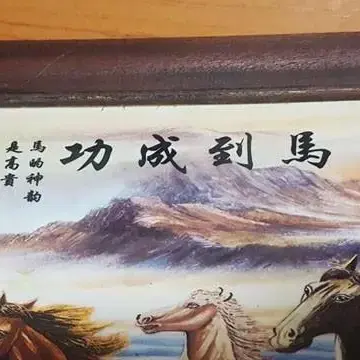 馬到成功
馬的神韵
是高貴